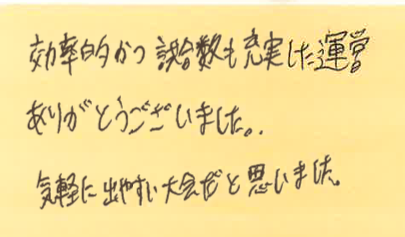 効率的かつ試合数も充実した運営
ありがとうございました。
気軽に出やすい大会だと思いました。